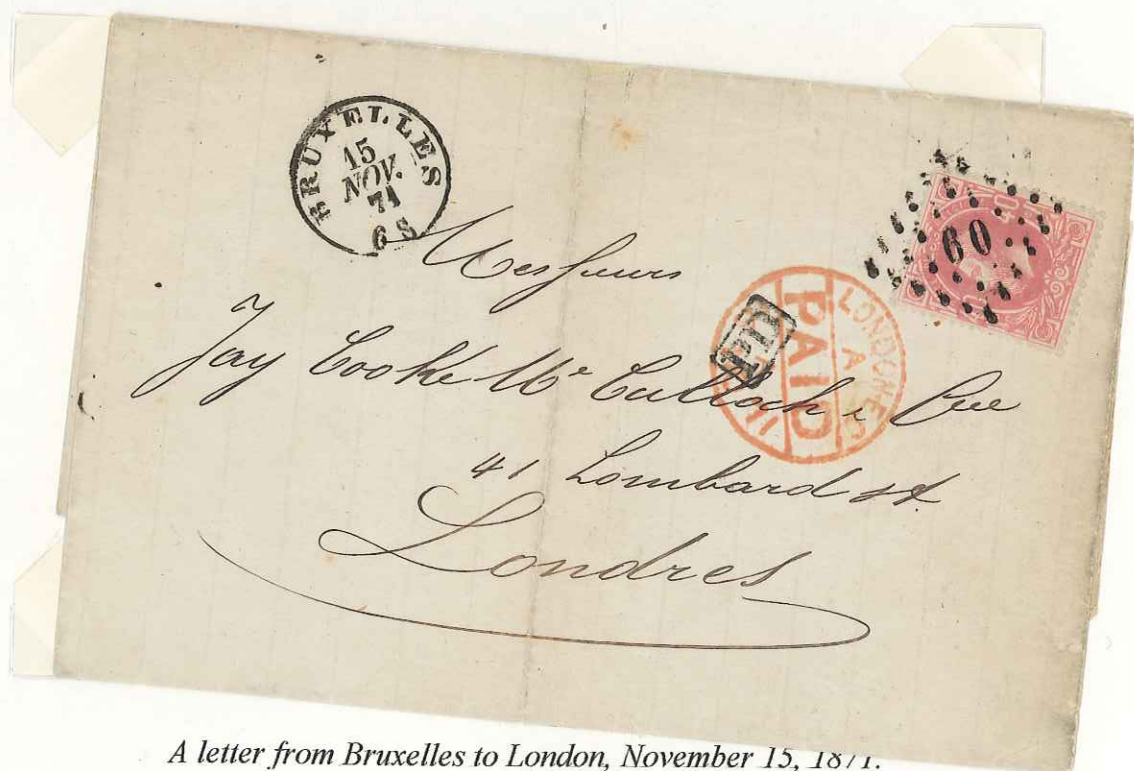 BRUXELLES
15
NOV.
71
6 S
60
PD
LONDON E.C
A
PAID
Messieurs
Jay Cooke Mc Culloch & Cie
41 Lombard st
Londres
A letter from Bruxelles to London, November 15, 1871.